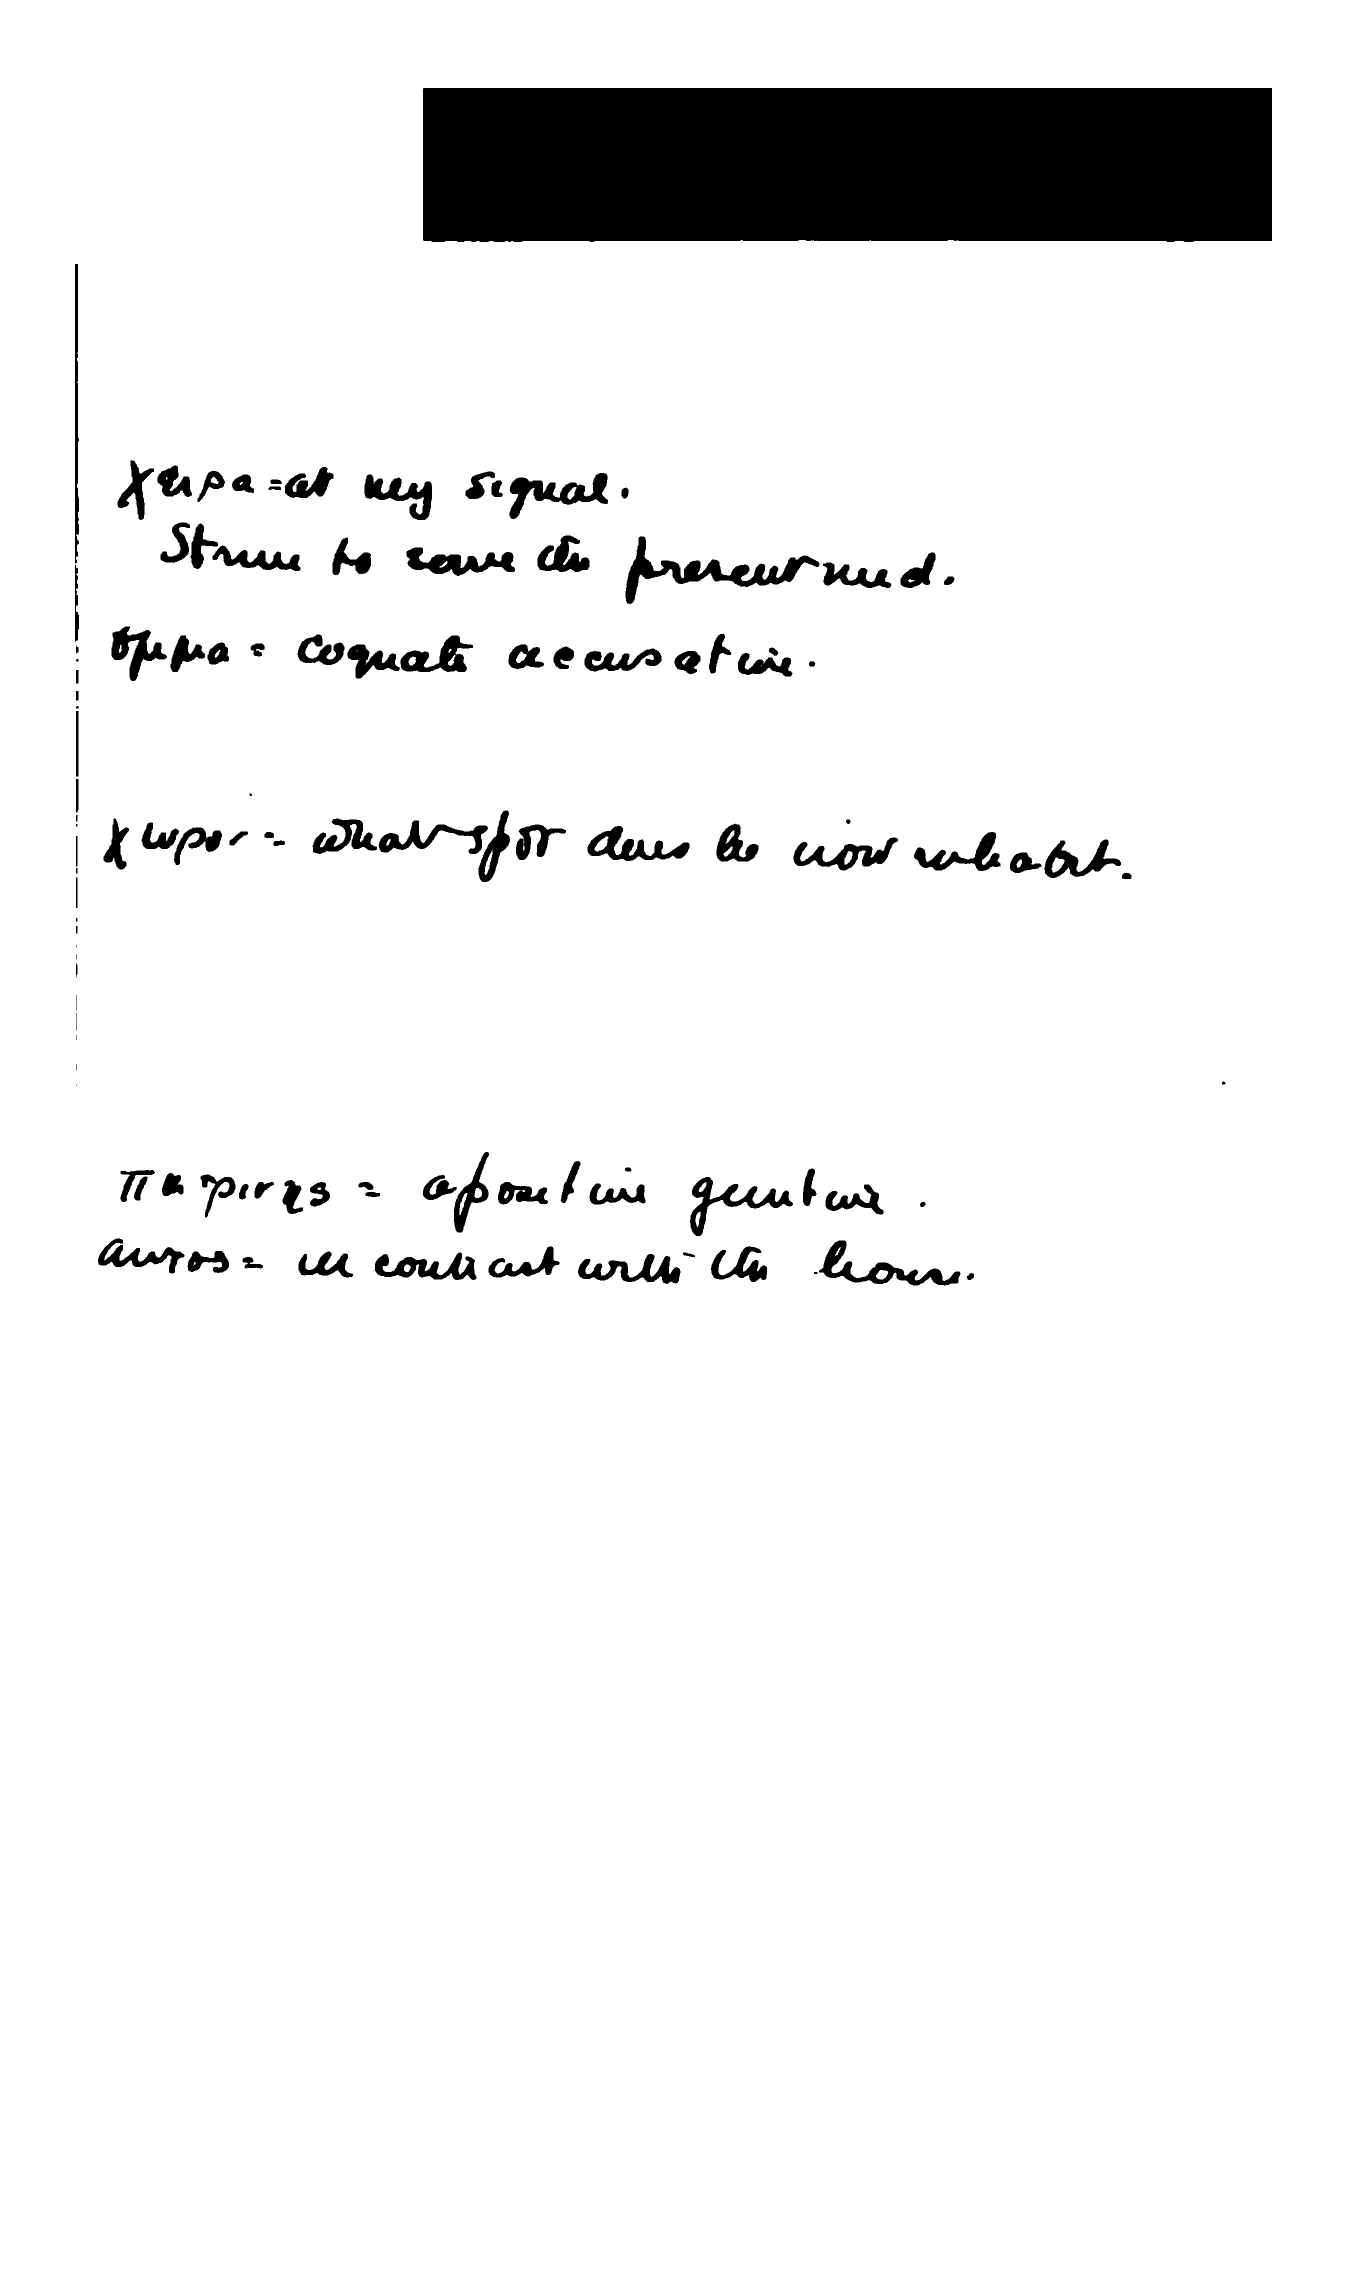 χειρα = at my signal.
Strive to serve the present need.
ομμα = cognate accusative.
χωρον = what spot does he now inhabit.
πετρινης = apositive genitive.
αυτος = in contrast with the house.